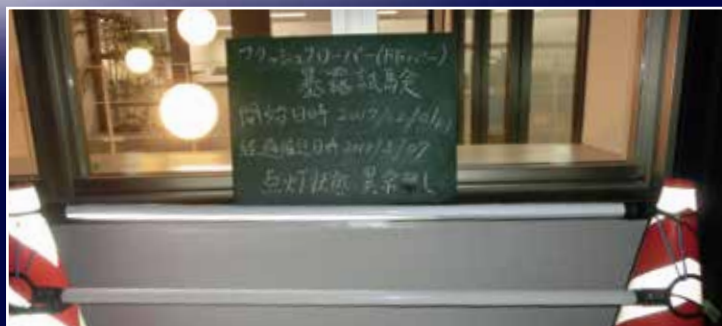 フラッシュフローバー(FFバー)
暴露試験
開始日時 2017/02/01
経過確認日時 2017/2/07
点灯状態 異常無し